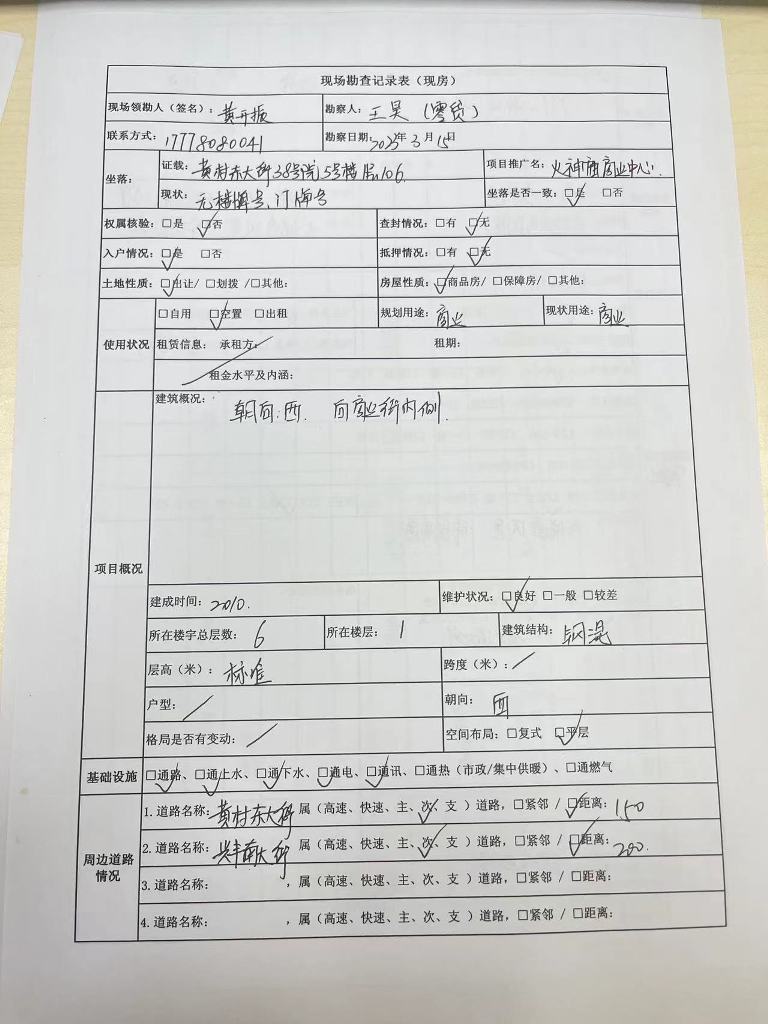 现场勘查记录表（现房）
现场领勘人（签名）：黄开振 勘察人：王昊（零贷）
联系方式：17778080041 勘察日期：2025年3月15日
坐落： 证载：黄村东大街38号院5号楼1层106 项目推广名：火神庙商业中心.
现状：无楼牌号、门牌号 坐落是否一致：☑是 □否
权属核验：□是 ☑否 查封情况：□有 ☑无
入户情况：☑是 □否 抵押情况：□有 ☑无
土地性质：☑出让/ □划拨 /□其他: 房屋性质：☑商品房/ □保障房/ □其他:
使用状况 □自用 ☑空置 □出租 规划用途：商业 现状用途：商业
租赁信息： 承租方： 租期：
租金水平及内涵:
项目概况 建筑概况：
朝向：西. 向商业街内侧.
建成时间：2010. 维护状况：☑良好 □一般 □较差
所在楼宇总层数：6 所在楼层：1 建筑结构：钢混
层高（米）：标准 跨度（米）：/
户型：/ 朝向：西
格局是否有变动：/ 空间布局：□复式 ☑平层
基础设施 ☑通路、☑通上水、☑通下水、☑通电、☑通讯、□通热（市政/集中供暖）、□通燃气
周边道路情况 1.道路名称：黄村东大街，属（高速、快速、主、次、支 ）道路，□紧邻 / ☑距离：150
2.道路名称：兴丰南大街，属（高速、快速、主、次、支 ）道路，□紧邻 / ☑距离：200.
3.道路名称： ，属（高速、快速、主、次、支 ）道路，□紧邻 / □距离：
4.道路名称： ，属（高速、快速、主、次、支 ）道路，□紧邻 / □距离：